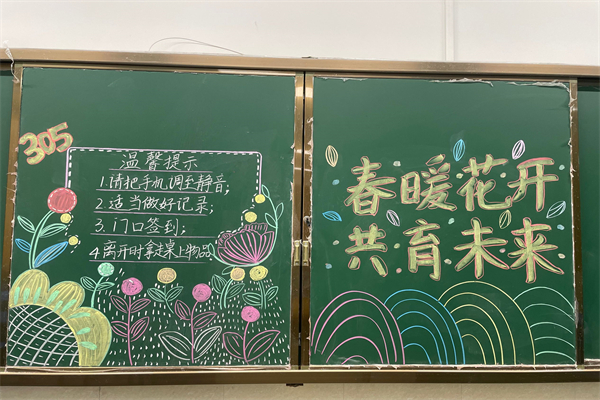 305
温馨提示
1.请把手机调至静音;
2.适当做好记录;
3.门口签到;
4.离开时拿走桌上物品
春暖花开
共育未来